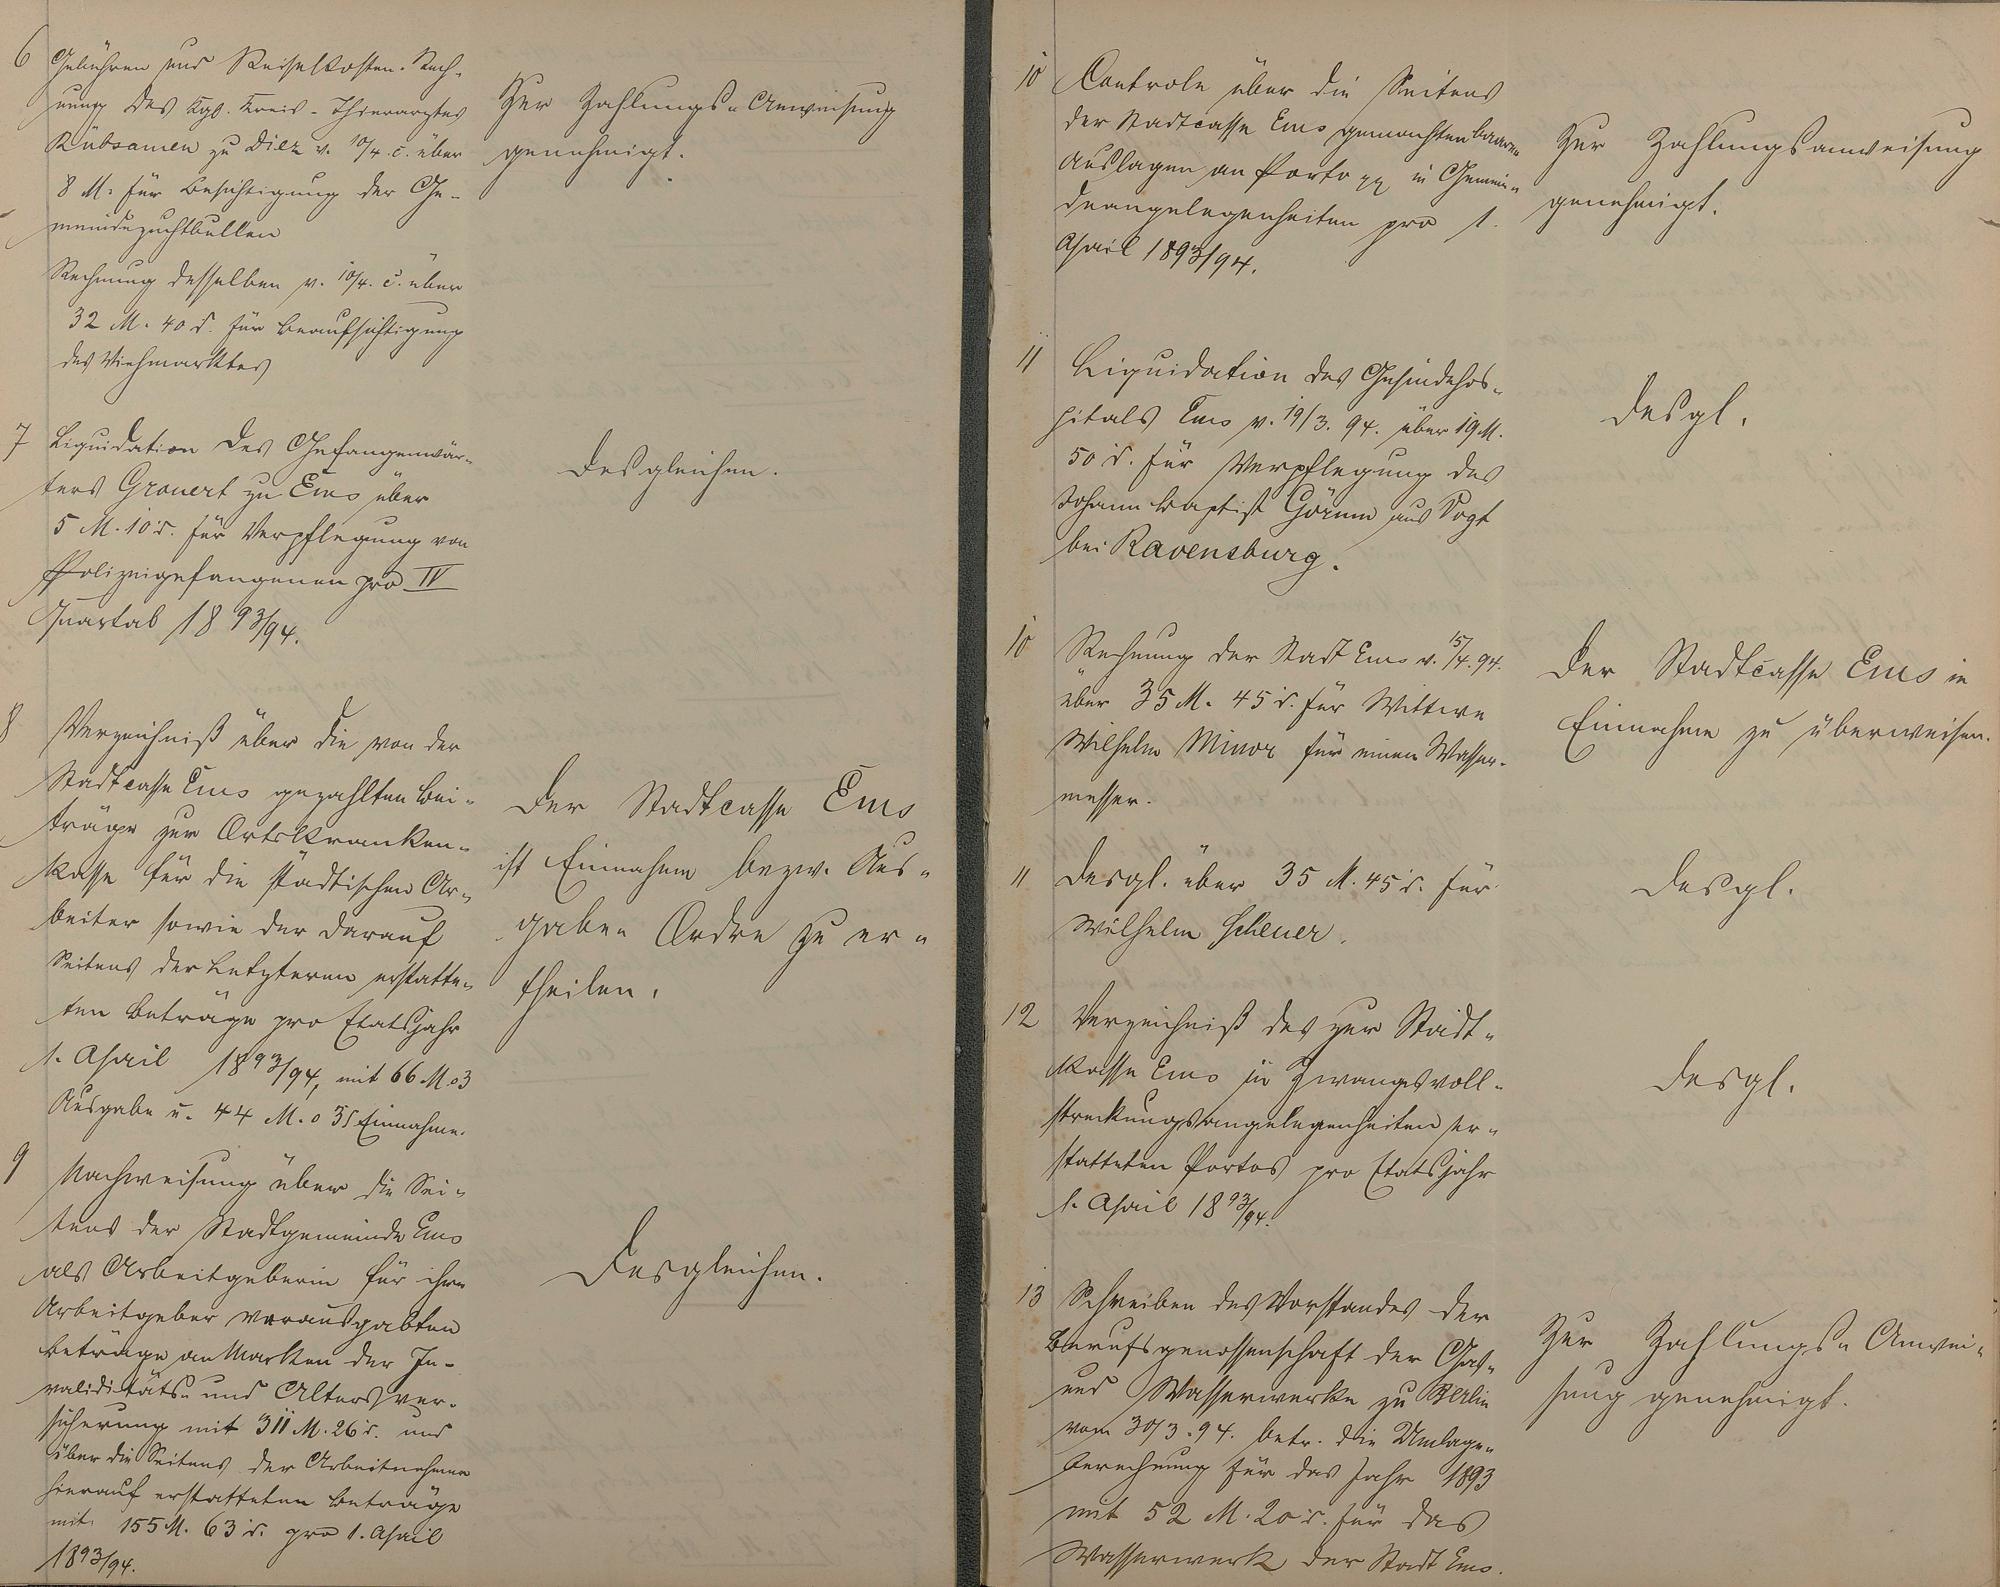 6 Gebühren und Reisekosten-Rech-
nung des Kgl. Kreis-Thierarztes
Rübsamen zu Diez v. 10/4. c. über
8 M. für Besichtigung der Ge-
meindezuchtbullen
Rechnung desselben v. 10/4. c. über
32 M. 40 d. für Beaufsichtigung
des Viehmarktes
Zur Zahlungs-Anweisung
genehmigt.
7 Liquidation des Gefangenwär-
ters Grauert zu Ems über
5 M. 10 d. für Verpflegung von
Polizeigefangenen pro IV
Quartal 1893/94.
Desgleichen.
8 Verzeichniß über die von der
Stadtcasse Ems gezahlten Bei-
träge zur Ortskranken-
kasse für die städtischen Ar-
beiter sowie der darauf
Seitens der Letzteren erstatte-
ten Beträge pro Etatsjahr
1. April 1893/94, mit 66 M. 03
Ausgabe u. 44 M. 03 Einnahme.
Der Stadtcasse Ems
ist Einnahme bezw. Aus-
gabe- Ordre zu er-
theilen.
9 Nachweisung über die Sei-
tens der Stadtgemeinde Ems
als Arbeitgeberin für ihre
Arbeitgeber verausgabten
Beträge an Marken der In-
validitäts- und Altersver-
sicherung mit 311 M. 26 d. und
über die Seitens der Arbeitnehmer
hierauf erstatteten Beträge
mit 155 M. 63 d. pro 1. April
1893/94.
Desgleichen.
10 Controle über die Seitens
der Stadtcasse Ems gemachten baaren
Auslagen an Porto pp in Gemein-
deangelegenheiten pro 1.
April 1893/94.
Zur Zahlungsanweisung
genehmigt.
11 Liquidation des Gesindehos-
pitals Ems v. 19/3. 94. über 19 M.
50 d. für Verpflegung des
Johann Baptist aus Vogt
bei Ravensburg.
Desgl.
10 Rechnung der Stadt Ems v. 15/4. 94.
über 35 M. 45 d. für Wittwe
Wilhelm Minor für einen Wasser-
messer.
Der Stadtcasse Ems in
Einnahme zu überweisen.
11 Desgl. über 35 M. 45 d. für
Wilhelm Scheuer.
Desgl.
12 Verzeichniß des zur Stadt-
kasse Ems in Zwangsvoll-
streckungsangelegenheiten er-
statteten Portos pro Etatsjahr
1. April 1893/94.
Desgl.
13 Schreiben des Vorstandes der
Berufsgenossenschaft der Gas-
und Wasserwerke zu Berlin
vom 30/3. 94. betr. die Umlage-
berechnung für das Jahr 1893
mit 52 M. 20 d. für das
Wasserwerk der Stadt Ems.
Zur Zahlungs-Anwei-
sung genehmigt.